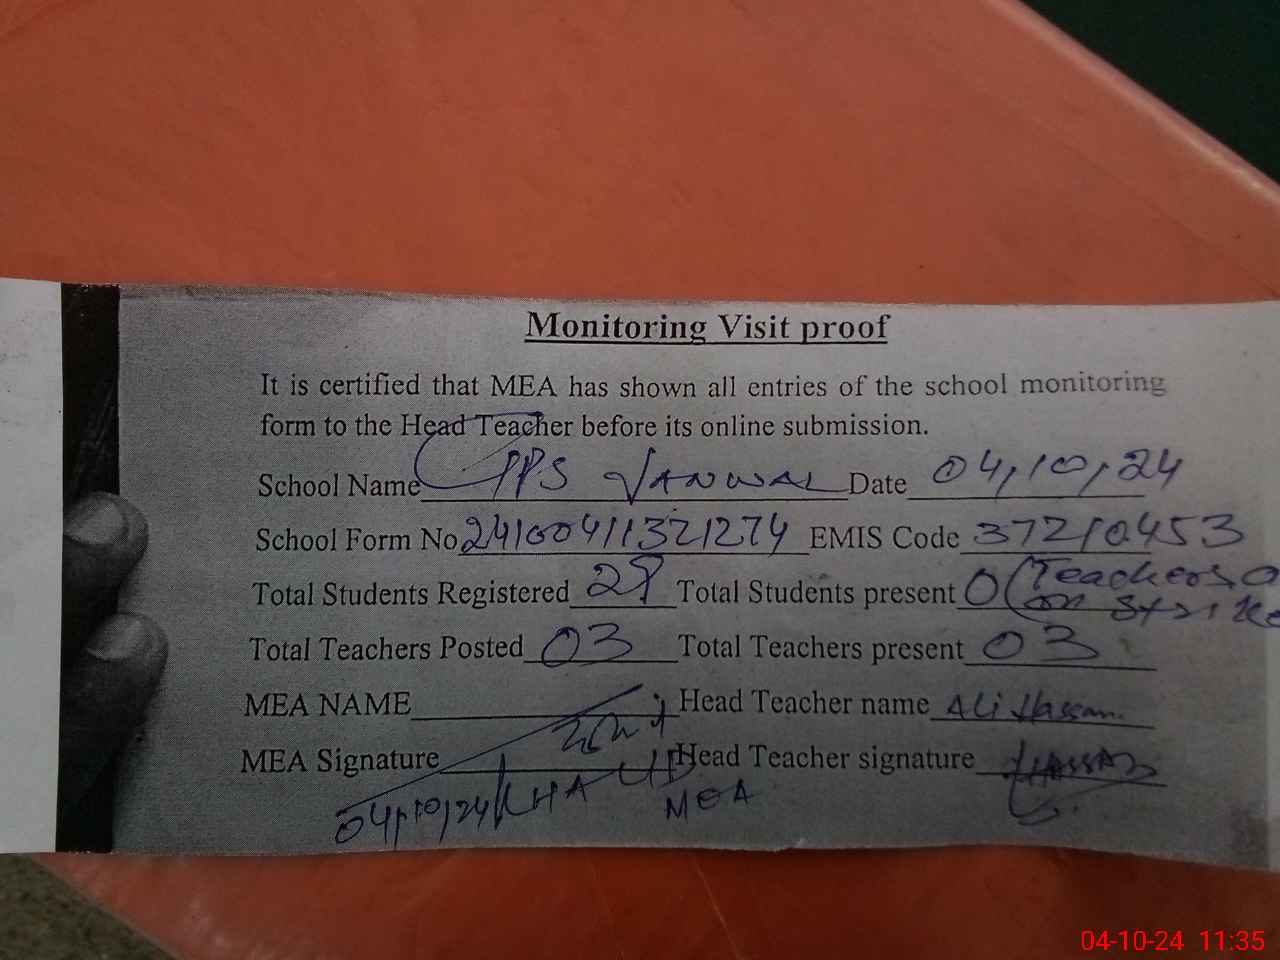 Monitoring Visit proof
It is certified that MEA has shown all entries of the school monitoring
form to the Head Teacher before its online submission.
School Name GPS JANWAL Date 04,10,24
School Form No 24100411321274 EMIS Code 37210453
Total Students Registered 29 Total Students present 0 (Teachers
on strike
Total Teachers Posted 03 Total Teachers present 03
MEA NAME Head Teacher name Ali Hassan
MEA Signature Head Teacher signature HASSAN
04/10/24
MEA
04-10-24 11:35